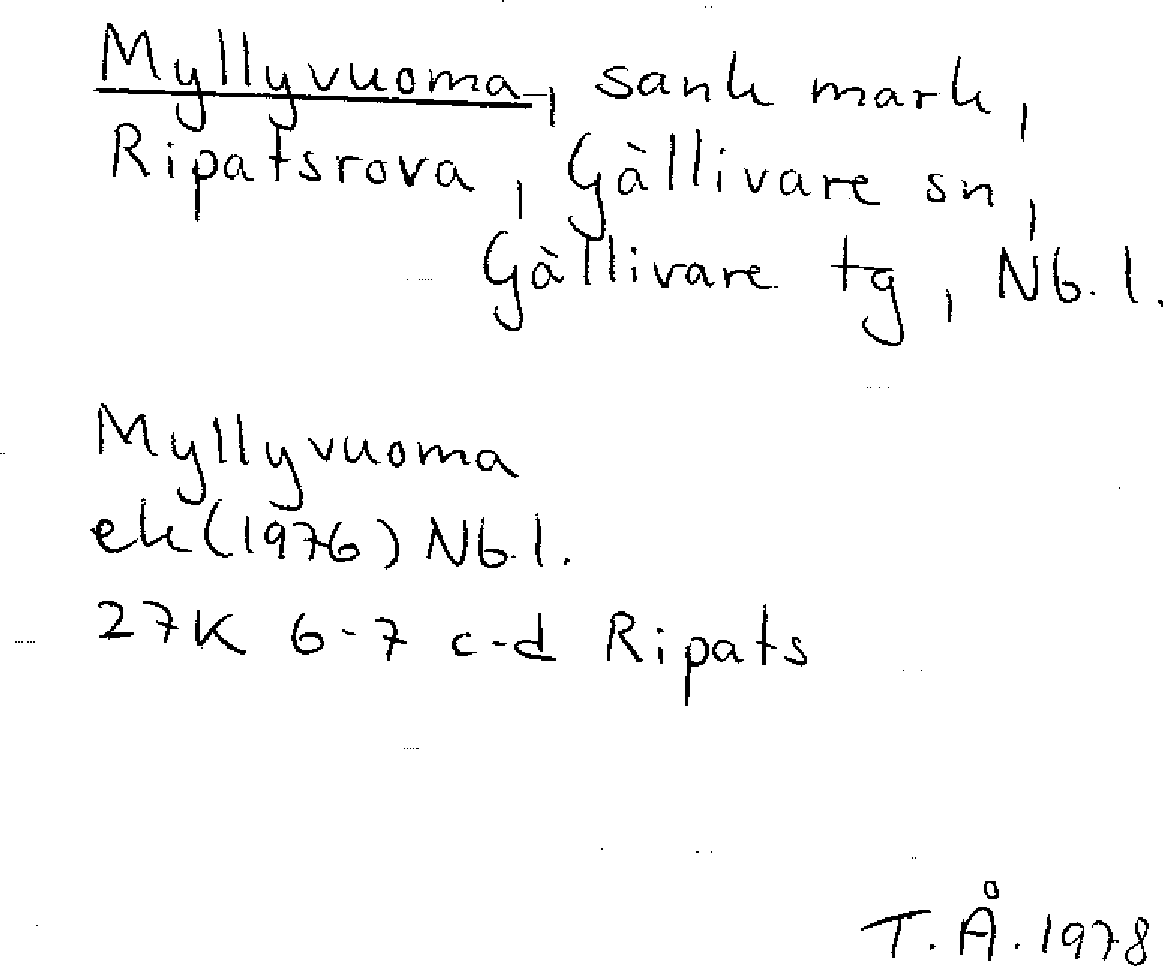 Myllyvuoma, sank mark,
Ripatsrova, Gällivare sn,
Gällivare tg, Nb. l.
Myllyvuoma
ek (1976) Nb. l.
27K 6-7 c-d Ripats
T. Å. 1978